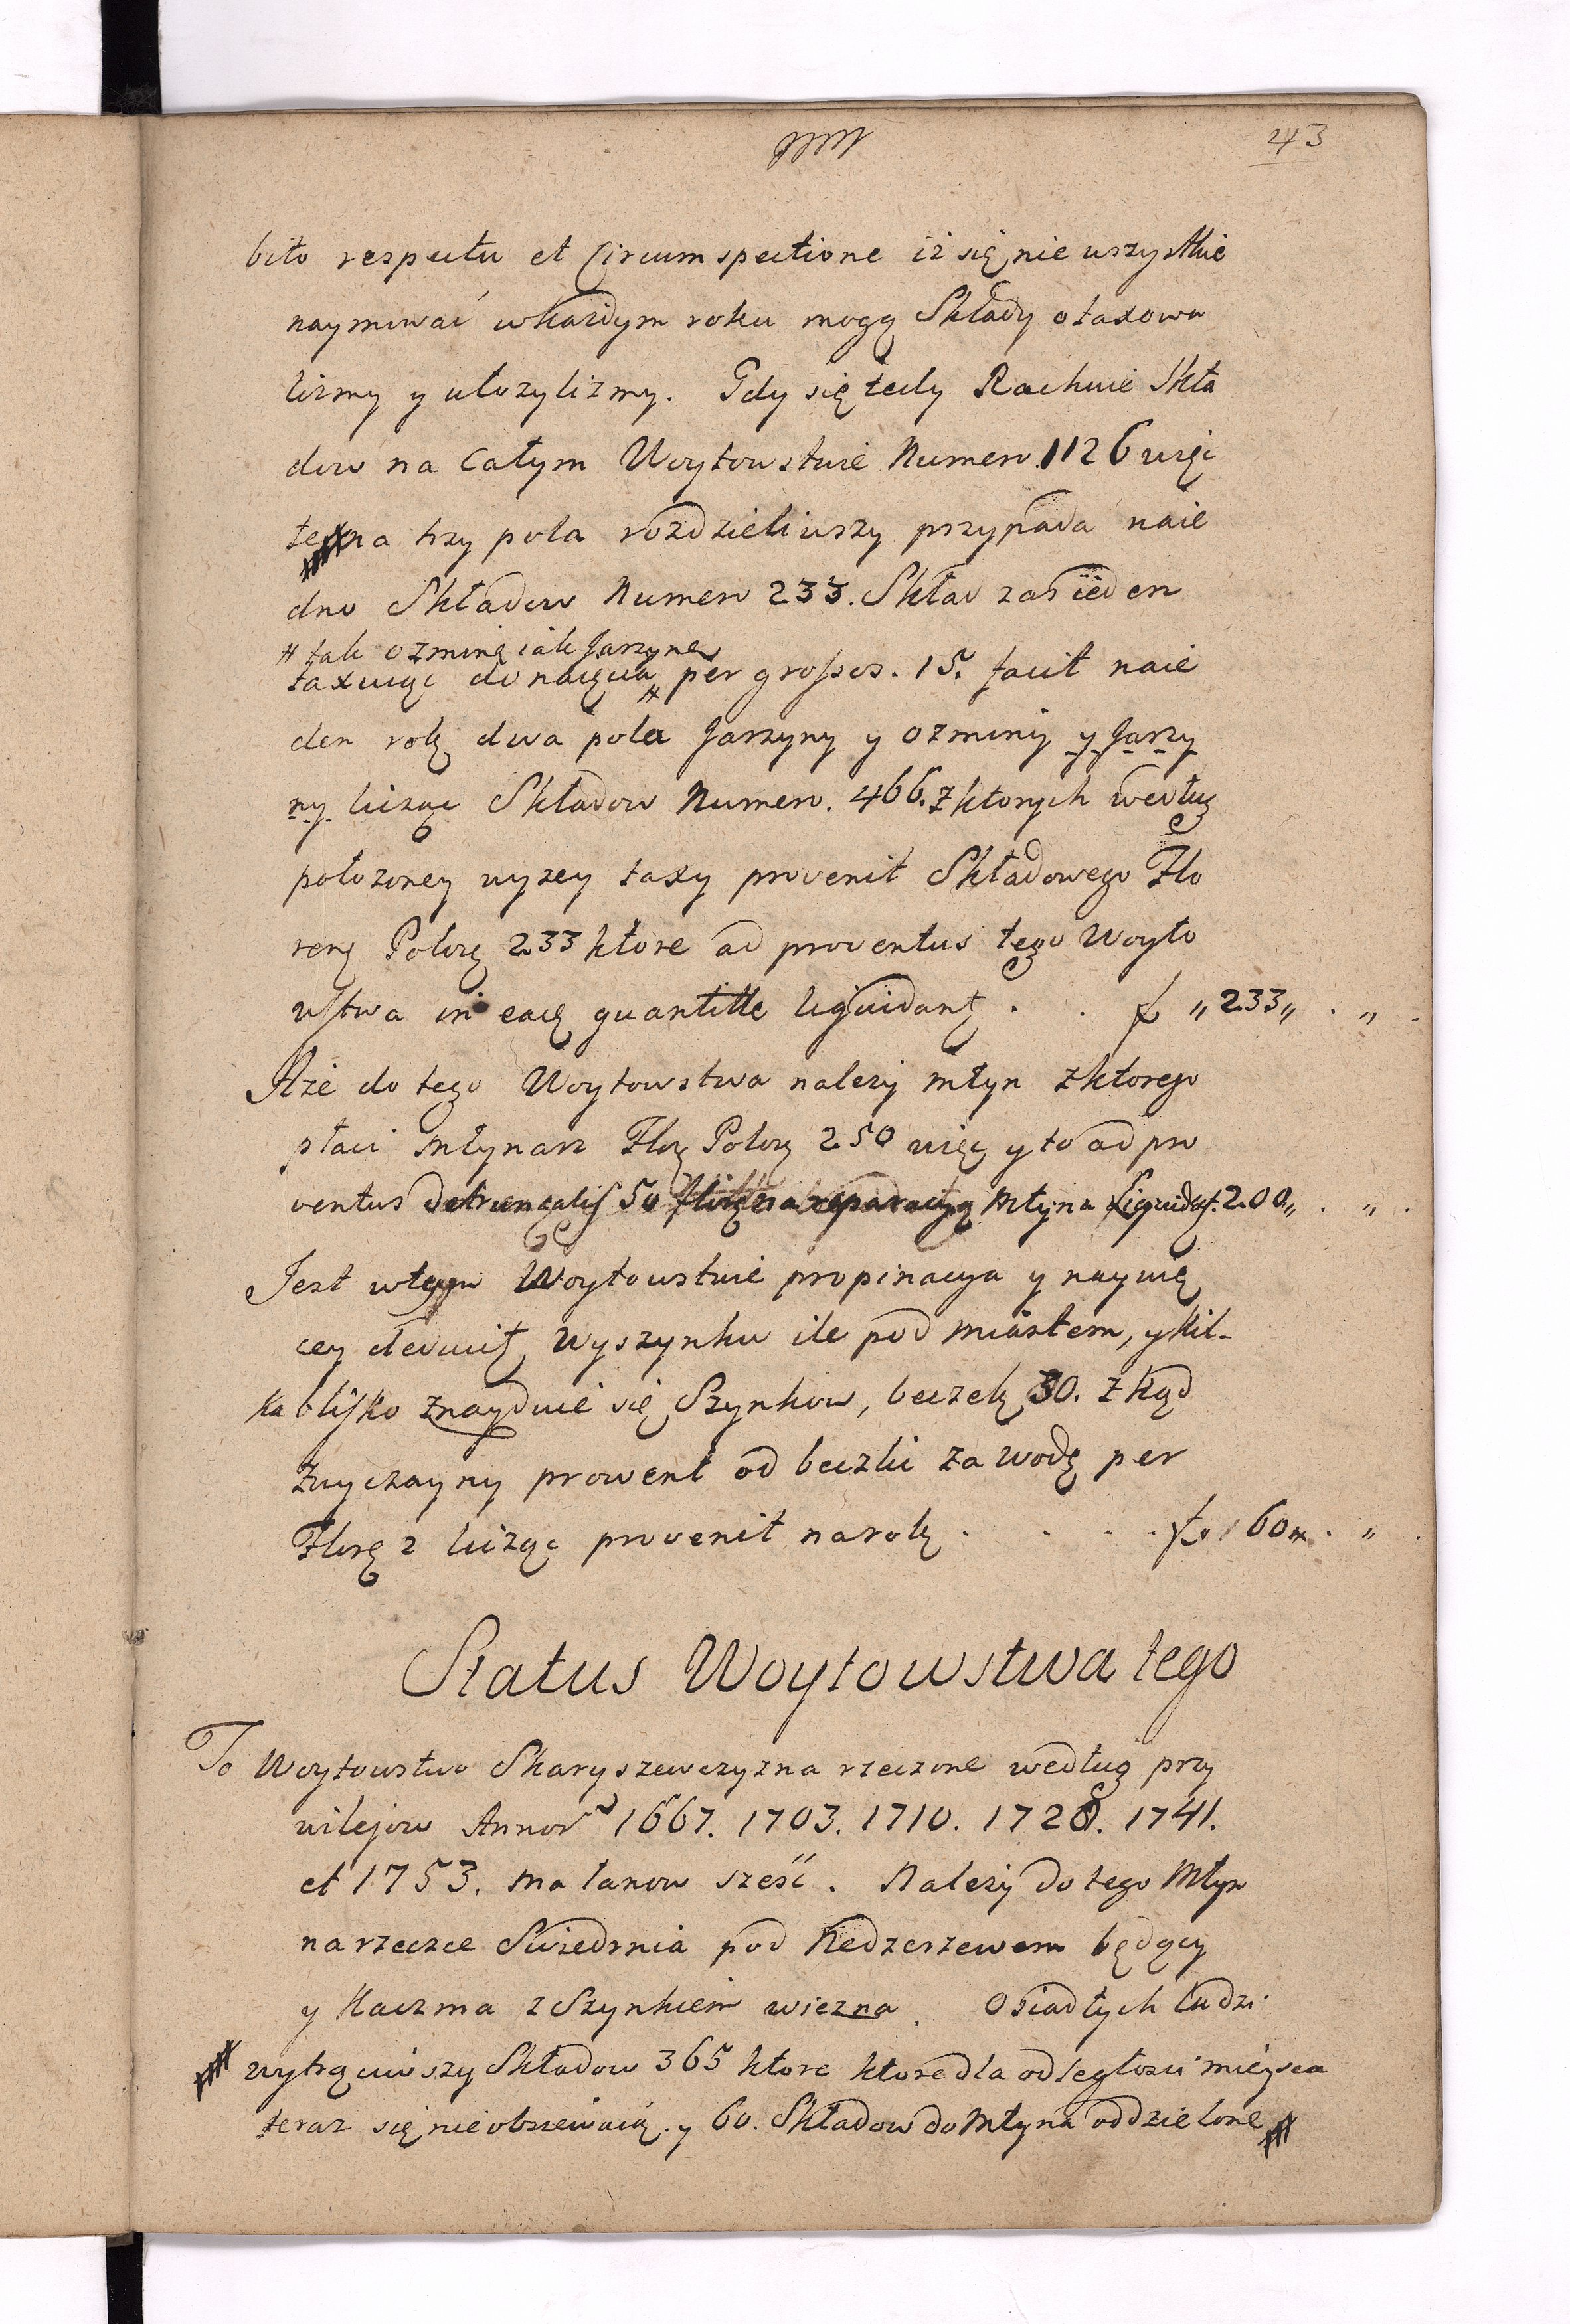 43
bito respectu et Circumspectione iż się nie wszystkie
naymować w każdym roku mogą Składy otaxowa
lizmy y ułozylizmy. Gdy się tedy Rachuie Skła
dow na Całym Woytowstwie Numero 1126 więc
te na trzy pola rozdzieliwszy przypada naie
dno Składow Numero 233. Skład zaś ieden
# tak ozminę iak Jarzynę
taxuiąc do naięcia # per grossos. 15. facit naie
den rok dwa pola Jarzyny y ozminy y Jarzy
ny licząc Składow Numero. 466. z ktorych według
położoney wyzey taxy provenit Składowego Flo
reny Polszę 233 ktore ad proventus tego Woyto
wstwa in eadę quantitte liquidant . . f „ 233 „ . „ .
Aże do tego Woytowstwa nalezy młyn z ktorego
płaci młynarz Flor Polszę 250 więc y to ad pro
ventus detruncatis 50 na reparacyą Młyna Liquidat f. 200 „ . „ .
Jest w tym Woytowstwie propinacya y naywię
cey Wyszynku ile pod miastem, y kil-
ka blisko znayduie się Szynkow, beczek 30. z kąd
zwyczayny prowent od beczki za wodę per
Florę 2 licząc provenit na rok . . . . f 60 . „ .
Status Woytowstwa tego
To Woytowstwo Skaryszewczyzna rzeczone według przy
wilejow Annor 1667. 1703. 1710. 1728. 1741.
et 1753. ma łanow sześć. Należy do tego Młyn
na rzeczce Swiedrnia pod Kedzerzewem będący
y Kaczma z Szynkiem wiezna. Osiadłych Ludzi
# wytrąciwszy Składow 365 ktore ktore dla odległości mieysca
teraz się nie obsiewaią. y 60. Składow do Młyna oddzielone #